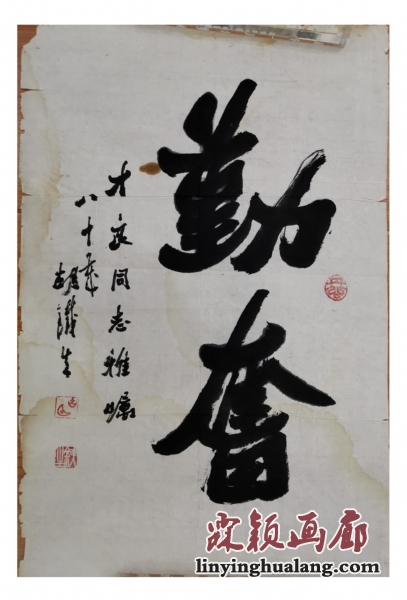 勤奮
才良同志雅嘱
八十歲
胡鐵生
霖颖画廊
linyinghualang.com